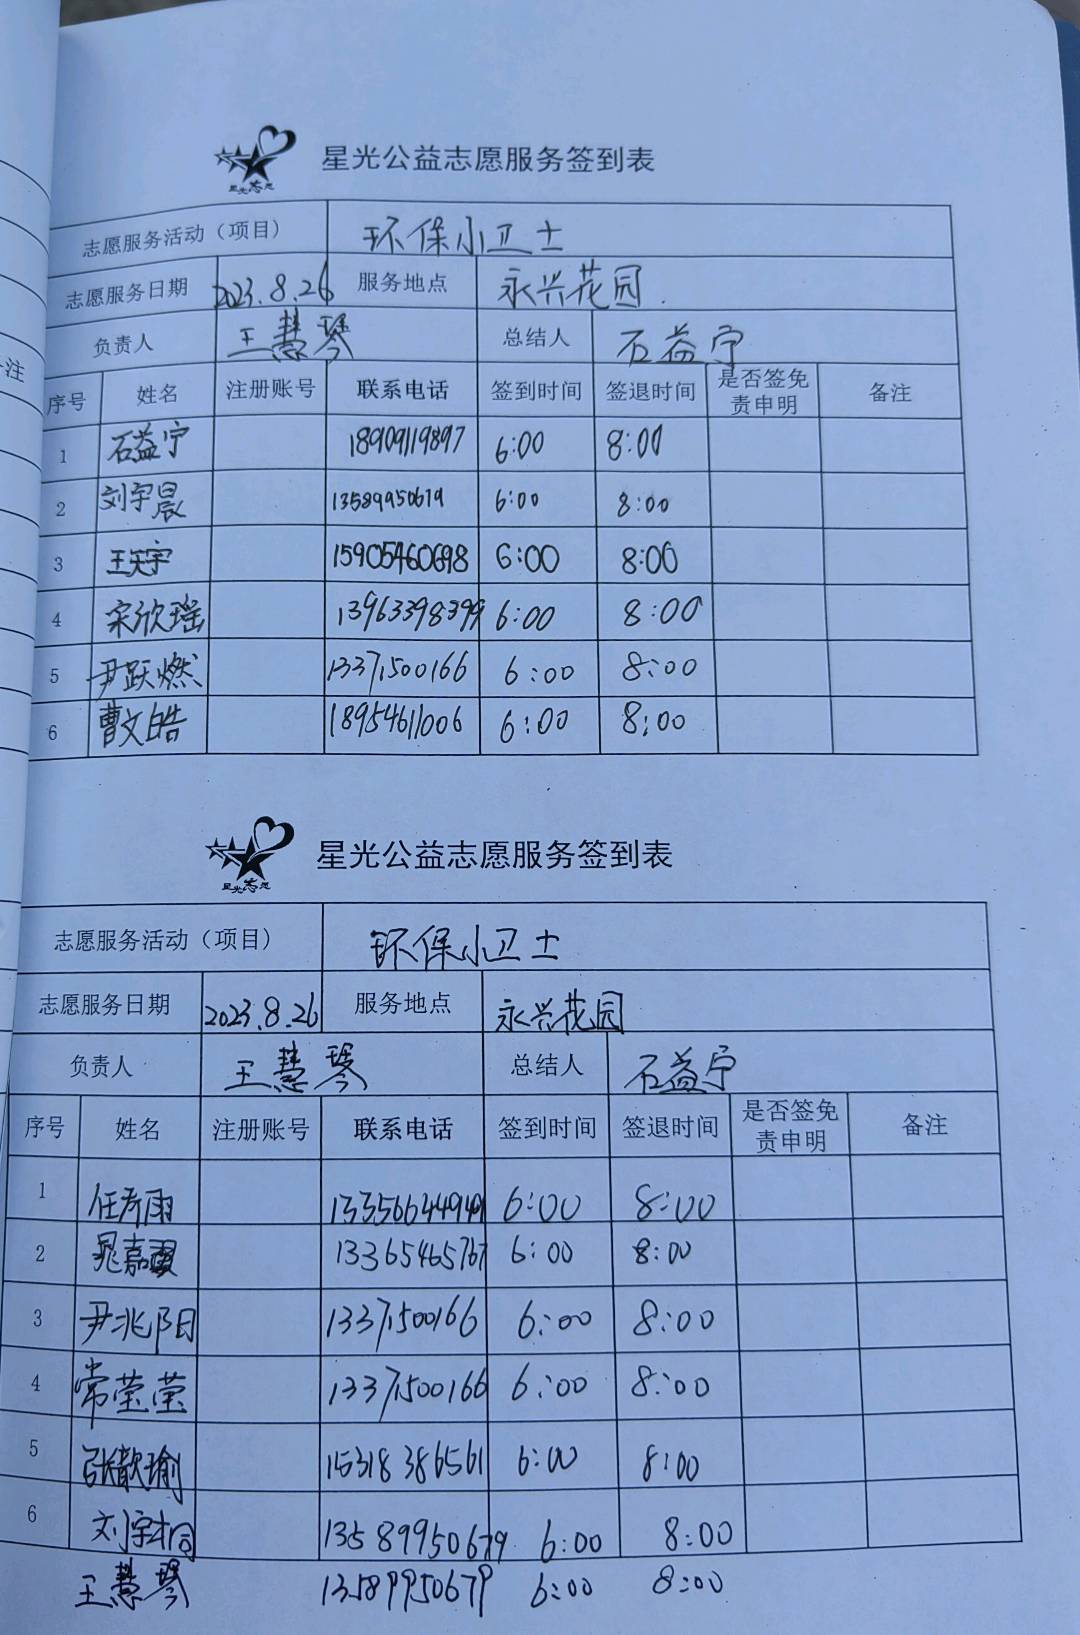 注
星光志愿
星光公益志愿服务签到表
志愿服务活动（项目） 环保小卫士
志愿服务日期 2023.8.26 服务地点 永兴花园.
负责人 王慧琴 总结人 石益宁
序号 姓名 注册账号 联系电话 签到时间 签退时间 是否签免责申明 备注
1 石益宁 18909119897 6:00 8:00
2 刘宇晨 13589950679 6:00 8:00
3 王天宇 15905460698 6:00 8:00
4 宋欣瑶 13963398399 6:00 8:00
5 尹跃燃 13371500166 6:00 8:00
6 曹文皓 18954611006 6:00 8:00
星光志愿
星光公益志愿服务签到表
志愿服务活动（项目） 环保小卫士
志愿服务日期 2023.8.26 服务地点 永兴花园
负责人 王慧琴 总结人 石益宁
序号 姓名 注册账号 联系电话 签到时间 签退时间 是否签免责申明 备注
1 6:00 8:00
2 晁嘉 13365465767 6:00 8:00
3 尹兆阳 13371500166 6:00 8:00
4 常莹莹 13371500166 6:00 8:00
5 张歆瑜 15318386561 6:00 8:00
6 刘宇桐 13589950679 6:00 8:00
王慧琴 13589950679 6:00 8:00